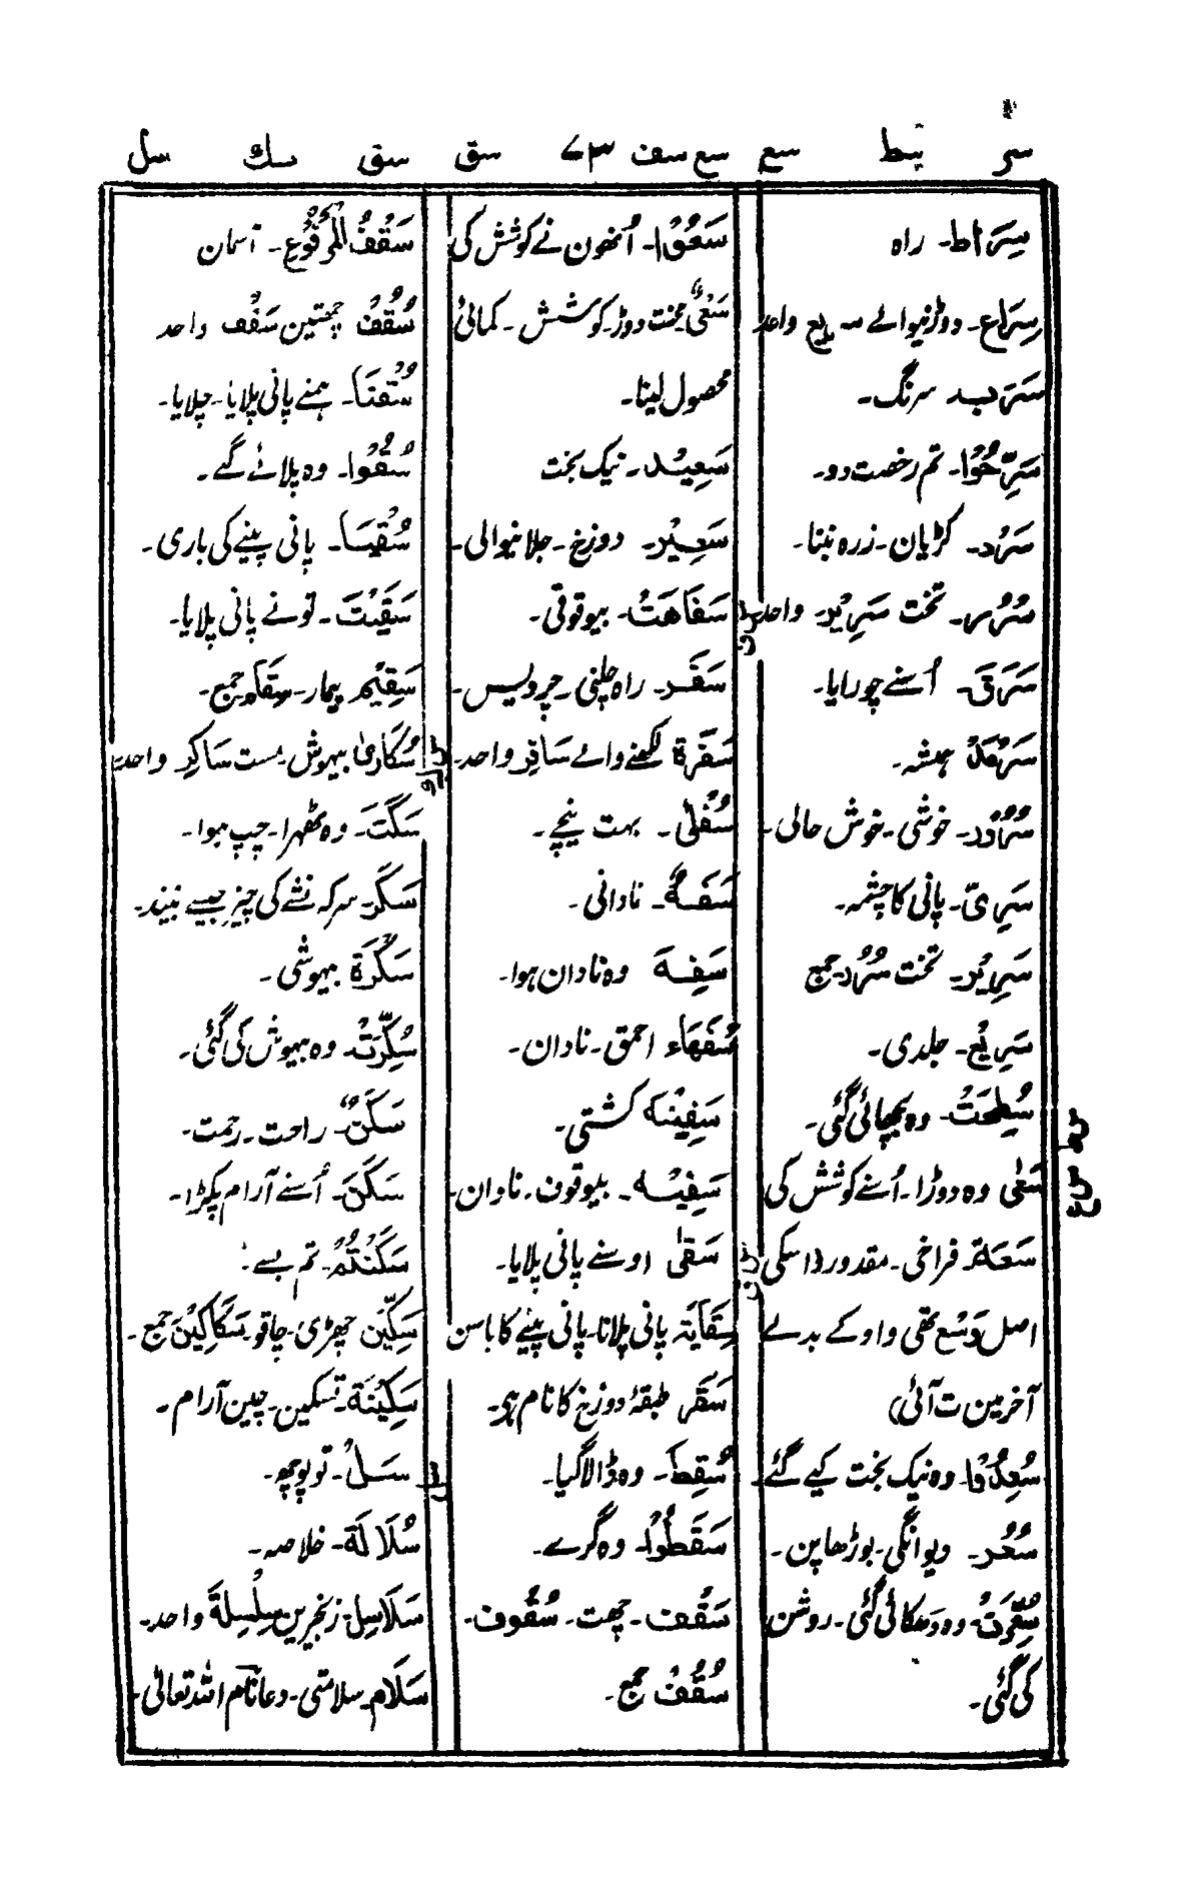 سر سط سع سع سف ۷۳ سق سق سک سل
سِرَاط۔ راہ
سِرَاع۔ دوڑنیوالے سریع واحد
سَرَب۔ سرنگ۔
سَرِّحُوْا۔ تم رخصت دو۔
سَرْد۔ کڑیان۔ زرہ بننا۔
سُرُر۔ تخت سَرِیْر۔ واحد
سَرَقَ۔ اُسنے چورایا۔
سَرْمَدْ ہمیشہ۔
سُرُوْر۔ خوشی۔ خوش حالی۔
سَرِیّ۔ پانی کا چشمہ۔
سَرِیْر۔ تخت سُرُر۔ جمع
سَرِیْع۔ جلدی۔
سُطِحَتْ۔ وہ بچھائی گئی۔
سط
سع
سَعٰی وہ دوڑا۔ اُسنے کوشش کی
سَعَة فراخی۔ مقدور (اسکی
اصل وَسْع تھی واو کے بدلے
آخرمین ت آئی)
سُعِدُوْا۔ وہ نیک بخت کیے گئے
سُعُر۔ دیوانگی۔ بوڑھاپن۔
سُعِّرَتْ۔ وہ دہکائی گئی۔ روشن
کی گئی۔
سَعَوْا۔ اُنھون نے کوشش کی
سَعْیٌ محنت دوڑ۔ کوشش۔ کمائی
محصول لینا۔
سَعِیْد۔ نیک بخت
سَعِیْر۔ دوزخ۔ جلانیوالی۔
سف
سَفَاهَتْ۔ بیوقوفی۔
سَفَر۔ راہ چلنی۔ پردیس۔
سَفَرَة لکھنے والے سَافِر واحد۔
سُفْلٰی۔ بہت نیچے۔
سَفَهٌ۔ نادانی۔
سَفِهَ وہ نادان ہوا۔
سُفَهَاء احمق۔ نادان۔
سَفِیْنَه کشتی۔
سَفِیْه۔ بیوقوف۔ نادان۔
سق
سَقٰی اوسنے پانی پلایا۔
سِقَایَة پانی پلانا۔ پانی پینے کا باسن
سَقَر طبقۂ دوزخ کا نام ہی۔
سُقِطَ۔ وہ ڈالا گیا۔
سَقَطُوْا۔ وہ گرے۔
سَقْف۔ چھت۔ سُقُوف۔
سُقُفْ جمع۔
سَقْفُ الْمَرْفُوْعِ۔ آسمان
سُقُفْ چھتین سَقْف واحد
سُقْنَا۔ ہمنے پانی پلایا۔ چلایا۔
سُقُوْا۔ وہ پلائے گے۔
سُقْیَا۔ پانی پینے کی باری۔
سَقَیْتَ۔ تونے پانی پلایا۔
سَقِیْم بیمار۔ سِقَام جمع۔
سک
سُکَارٰی بیہوش۔ مست سَاکِر واحد۔
سَکَتَ۔ وہ ٹھہرا۔ چپ ہوا۔
سَکَر۔ سرکہ نشے کی چیز جیسے نبیذ۔
سَکْرَة بیہوشی۔
سُکِّرَتْ۔ وہ بیہوش کی گئی۔
سَکَنٌ۔ راحت۔ رحمت۔
سَکَنَ۔ اُسنے آرام پکڑا۔
سَکَنْتُمْ۔ تم بسے۔
سِکِّیْن چھڑی۔ چاقو۔ سَکَاکِیْن جمع۔
سَکِیْنَة۔ تسکین۔ چین آرام۔
سل
سَلْ۔ تو پوچھ۔
سُلَالَة۔ خلاصہ۔
سَلَاسِل۔ زنجیرین سِلْسِلَة واحد۔
سَلَام۔ سلامتی۔ دعا نام اللہ تعالی۔